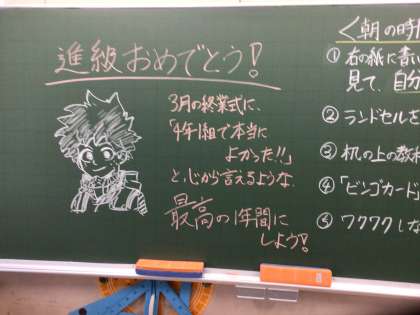 進級おめでとう!
3月の終業式に、
「4年1組で本当に
よかった!!」
と、心から言えるような
最高の1年間に
しよう!
<朝の時
① 右の紙に書い
見て、自分
② ランドセルを
③ 机の上の教材
④ 「ビンゴカード」
⑤ ワクワクしな